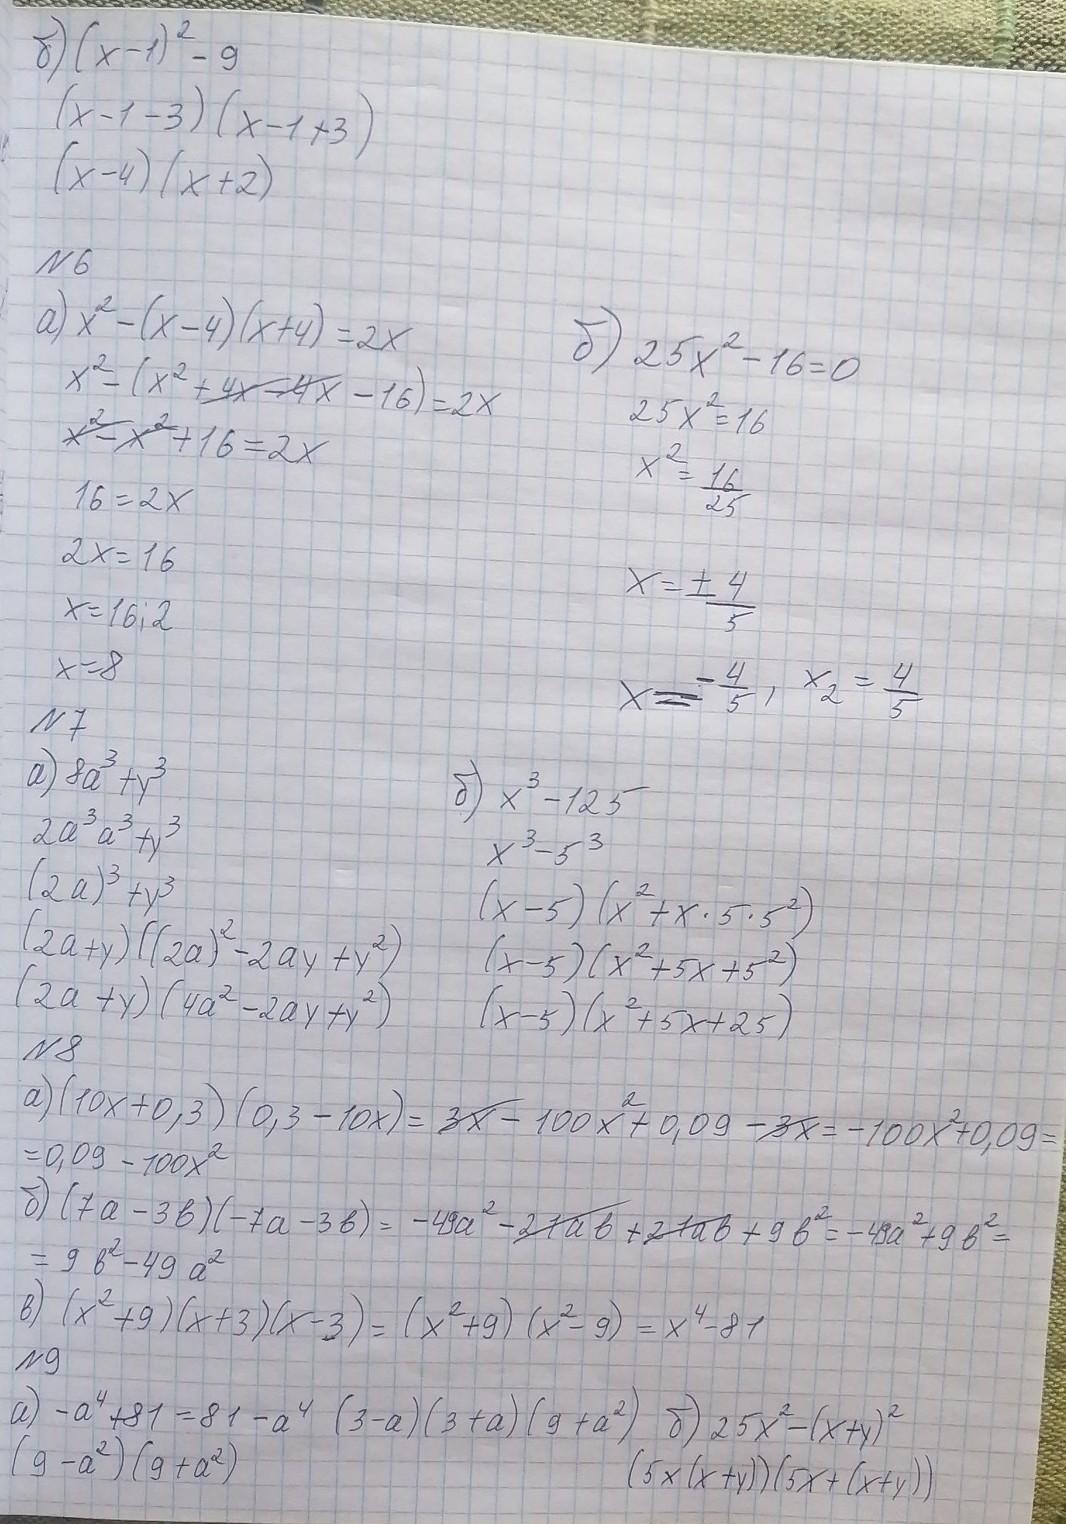 б) (x-1)² - 9
(x-1-3)(x-1+3)
(x-4)(x+2)
N6
а) x² - (x-4)(x+4) = 2x
x² - (x² + 4x - 4x - 16) = 2x
x² - x² + 16 = 2x
16 = 2x
2x = 16
x = 16:2
x = 8
б) 25x² - 16 = 0
25x² = 16
x² = 16/25
x = ± 4/5
x = -4/5, x₂ = 4/5
N7
а) 8a³ + y³
2a³a³ + y³
(2a)³ + y³
(2a+y)((2a)² - 2ay + y²)
(2a+y)(4a² - 2ay + y²)
б) x³ - 125
x³ - 5³
(x-5)(x² + x·5·5²)
(x-5)(x² + 5x + 5²)
(x-5)(x² + 5x + 25)
N8
а) (10x+0,3)(0,3-10x) = 3x - 100x² + 0,09 - 3x = -100x² + 0,09 =
= 0,09 - 100x²
б) (7a - 3b)(-7a - 3b) = -49a² - 21ab + 21ab + 9b² = -49a² + 9b² =
= 9b² - 49a²
в) (x²+9)(x+3)(x-3) = (x²+9)(x²-9) = x⁴ - 81
N9
а) -a⁴ + 81 = 81 - a⁴ (3-a)(3+a)(9+a²)
(9-a²)(9+a²)
б) 25x² - (x+y)²
(5x(x+y))(5x+(x+y))